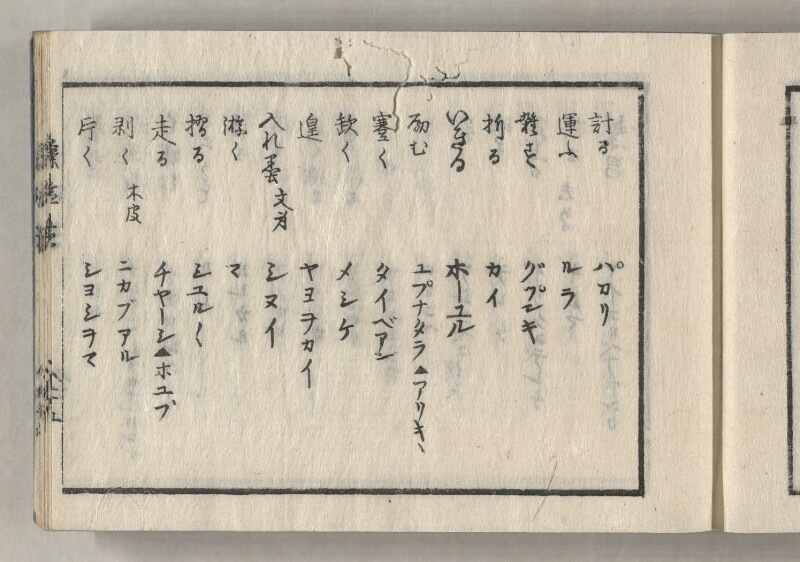 計る パカリ
運ふ ルラ
難す グプンキ
折る カイ
いきる ホーユル
励む ユプナタラ▲アリキヽ
蹇く タイベアン
缺く メシケ
遑く ヤヨヲカイ
入れ墨 文身 シヌイ
游く マ
摺る シユルく
走る チヤーシ▲ホユプ
剥く 木皮 ニカプアル
斥く シヨシヲマ